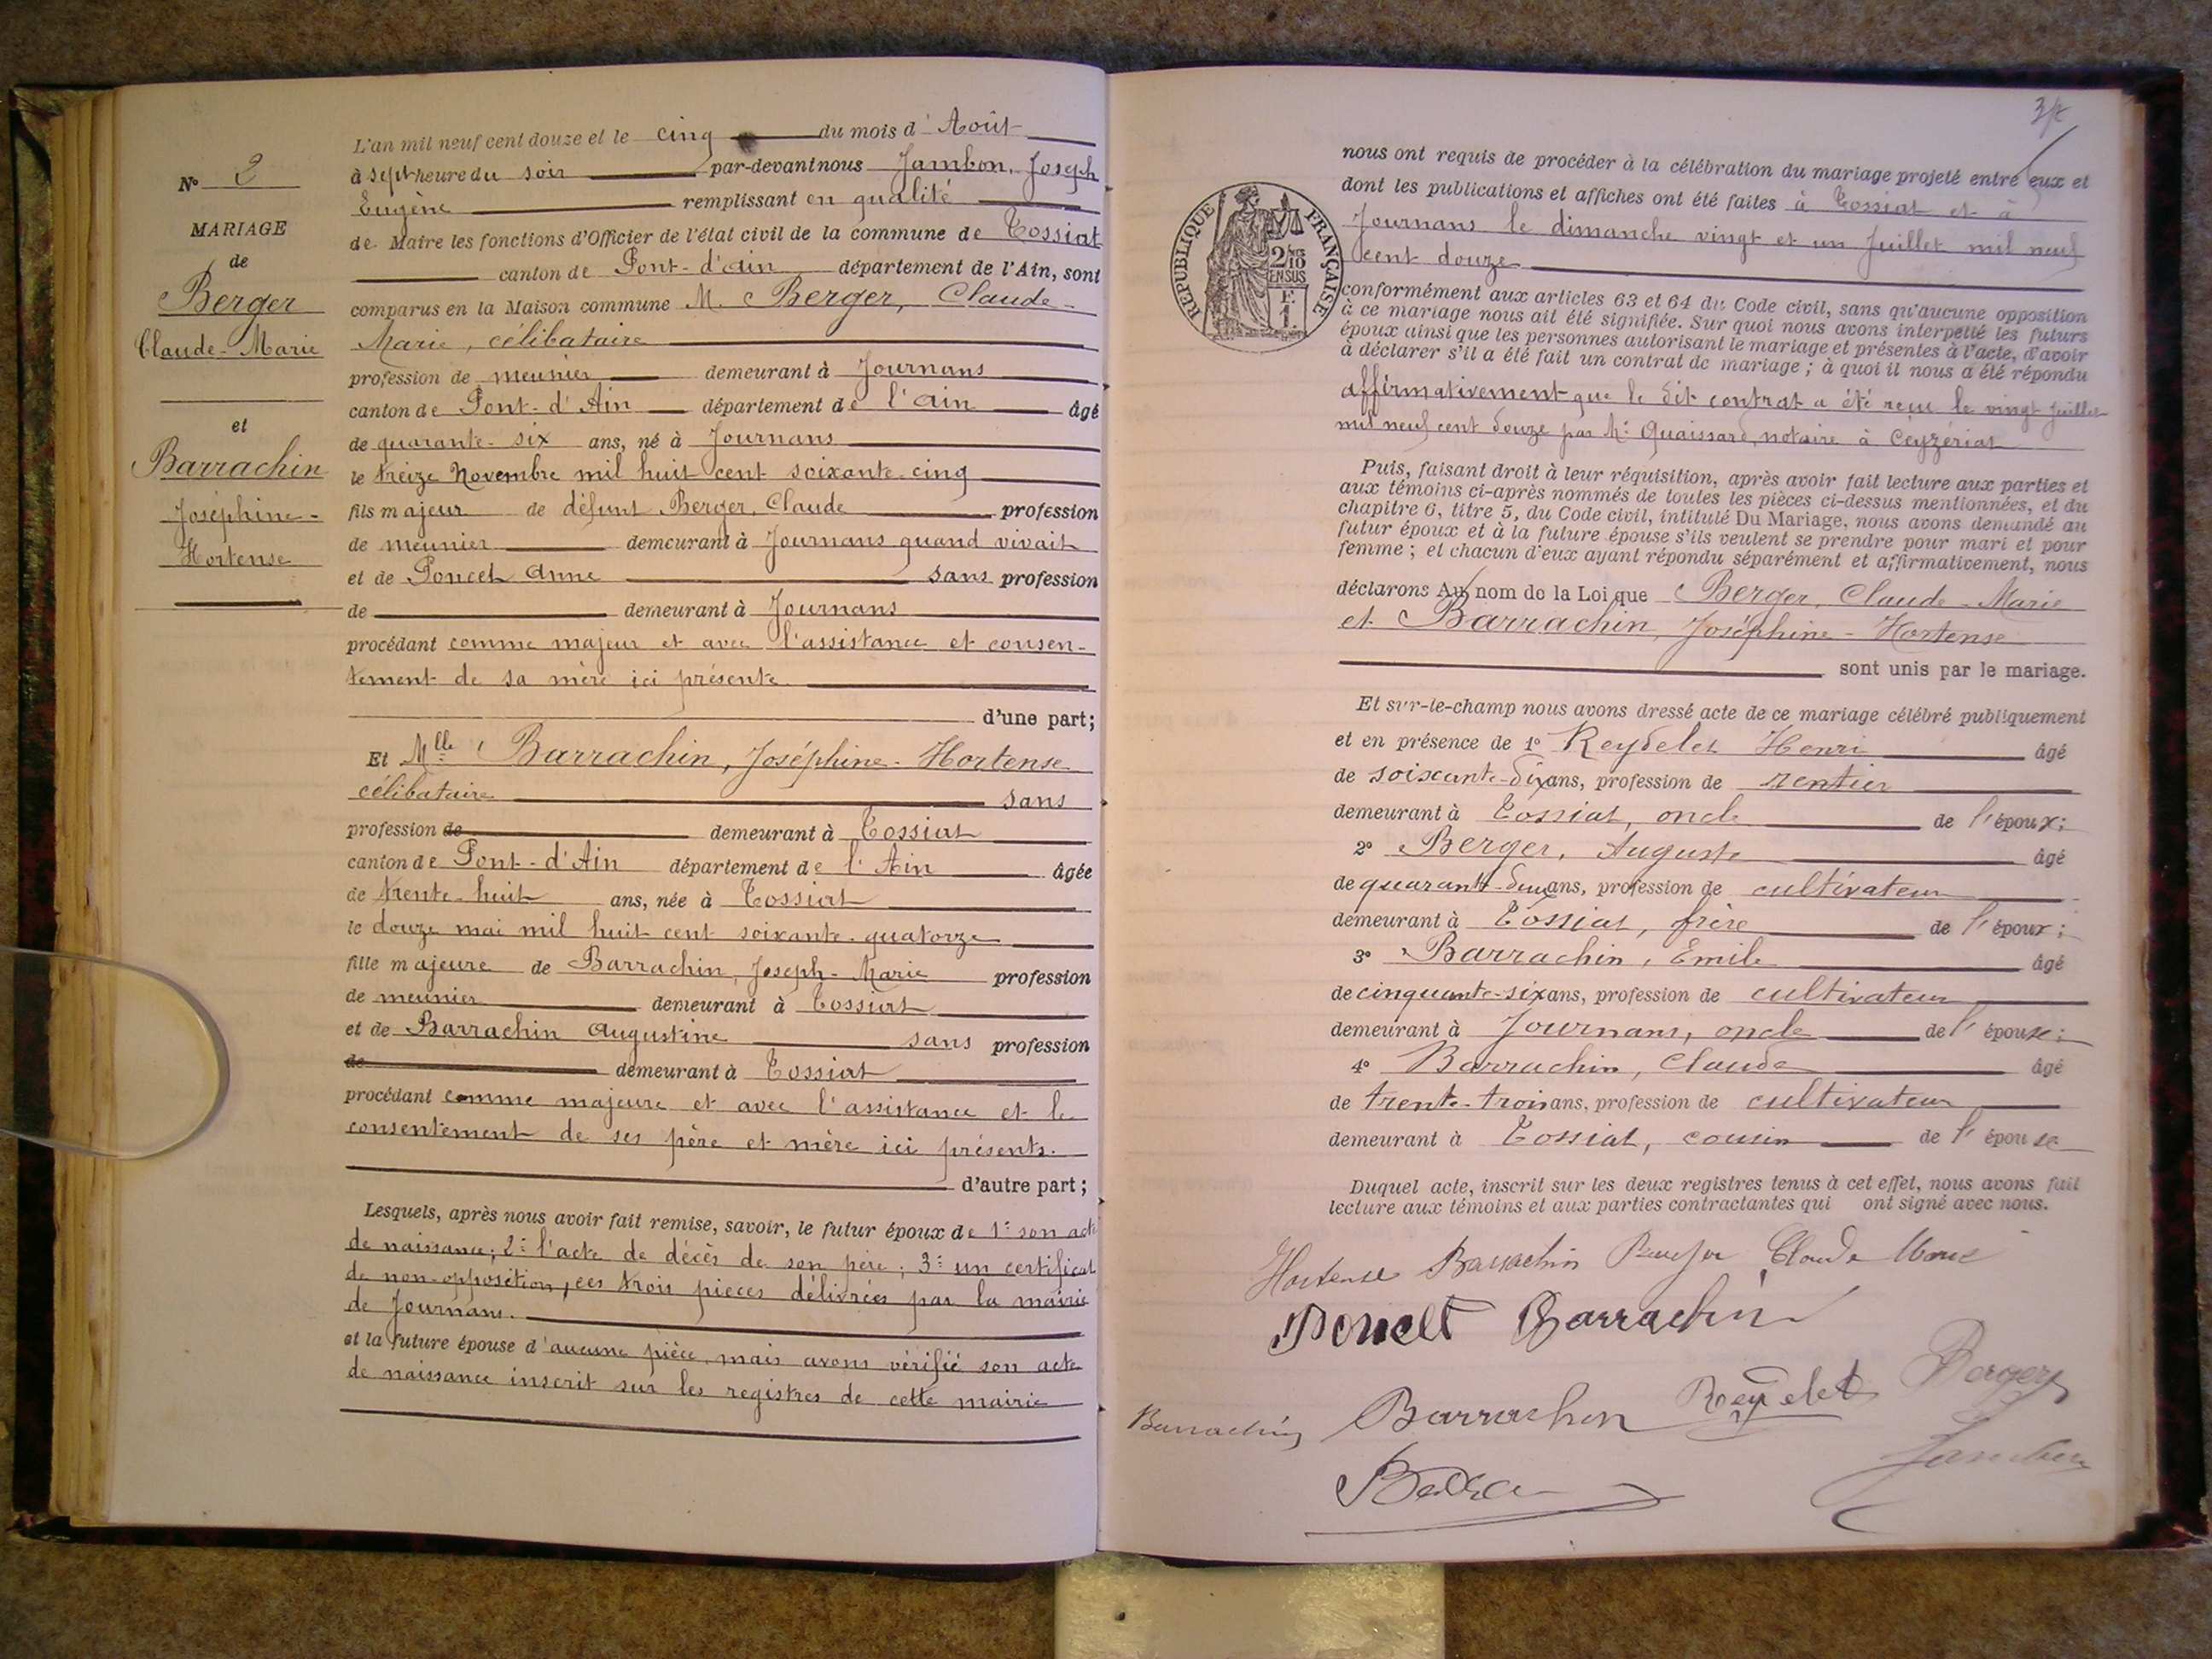 L'an mil neuf cent douze et le cinq du mois d'Août
à sept heure du soir par-devant nous Jambon, Joseph
Eugène remplissant en qualité
de Maire les fonctions d'Officier de l'état civil de la commune de Tossiat
canton de Pont-d'Ain département de l'Ain, sont
comparus en la Maison commune M. Berger, Claude-
Marie, célibataire
profession de meunier demeurant à Journans
canton de Pont-d'Ain département de l'Ain âgé
de quarante-six ans, né à Journans
le treize Novembre mil huit cent soixante-cinq
fils majeur de défunt Berger, Claude profession
de meunier demeurant à Journans quand vivait
et de Poncet Anne sans profession
de demeurant à Journans
procédant comme majeur et avec l'assistance et consen-
tement de sa mère ici présente
d'une part;
Et Mlle Barrachin, Joséphine-Hortense
célibataire sans
profession de demeurant à Tossiat
canton de Pont-d'Ain département de l'Ain âgée
de trente-huit ans, née à Tossiat
le douze mai mil huit cent soixante-quatorze
fille majeure de Barrachin, Joseph-Marie profession
de meunier demeurant à Tossiat
et de Barrachin Augustine sans profession
de demeurant à Tossiat
procédant comme majeure et avec l'assistance et le
consentement de ses père et mère ici présents.
d'autre part;
Lesquels, après nous avoir fait remise, savoir, le futur époux de 1º son acte
de naissance; 2º l'acte de décès de son père; 3º un certificat
de non-opposition, ces trois pièces délivrées par la mairie
de Journans.
et la future épouse d'aucune pièce, mais avons vérifié son acte
de naissance inscrit sur les registres de cette mairie
Nº
MARIAGE
de
Berger
Claude-Marie
et
Barrachin
Joséphine-
Hortense
nous ont requis de procéder à la célébration du mariage projeté entre eux et
dont les publications et affiches ont été faites à Tossiat et à
Journans le dimanche vingt et un Juillet mil neuf
cent douze
RÉPUBLIQUE FRANÇAISE
2/10
EN SUS
F.
1
conformément aux articles 63 et 64 du Code civil, sans qu'aucune opposition
à ce mariage nous ait été signifiée. Sur quoi nous avons interpellé les futurs
époux ainsi que les personnes autorisant le mariage et présentes à l'acte, d'avoir
à déclarer s'il a été fait un contrat de mariage; à quoi il nous a été répondu
affirmativement que le dit contrat a été reçu le vingt juillet
mil neuf cent douze par Me Quaissard, notaire à Ceyzériat
Puis, faisant droit à leur réquisition, après avoir fait lecture aux parties et
aux témoins ci-après nommés de toutes les pièces ci-dessus mentionnées, et du
chapitre 6, titre 5, du Code civil, intitulé Du Mariage, nous avons demandé au
futur époux et à la future épouse s'ils veulent se prendre pour mari et pour
femme; et chacun d'eux ayant répondu séparément et affirmativement, nous
déclarons Au nom de la Loi que Berger, Claude-Marie
et Barrachin, Joséphine-Hortense
sont unis par le mariage.
Et sur-le-champ nous avons dressé acte de ce mariage célébré publiquement
et en présence de 1º Reydelet Henri âgé
de soixante-dix ans, profession de rentier
demeurant à Tossiat, oncle de l'époux;
2º Berger, Auguste âgé
de quarante-deux ans, profession de cultivateur
demeurant à Tossiat, frère de l'époux;
3º Barrachin, Emile âgé
de cinquante-six ans, profession de cultivateur
demeurant à Journans, oncle de l'épouse;
4º Barrachin, Claude âgé
de trente-trois ans, profession de cultivateur
demeurant à Tossiat, cousin de l'épouse
Duquel acte, inscrit sur les deux registres tenus à cet effet, nous avons fait
lecture aux témoins et aux parties contractantes qui ont signé avec nous.
Hortense Barrachin Claude Marie
Poncet Barrachin
Berger
Reydelet
Barrachin Barrachin
Jambon